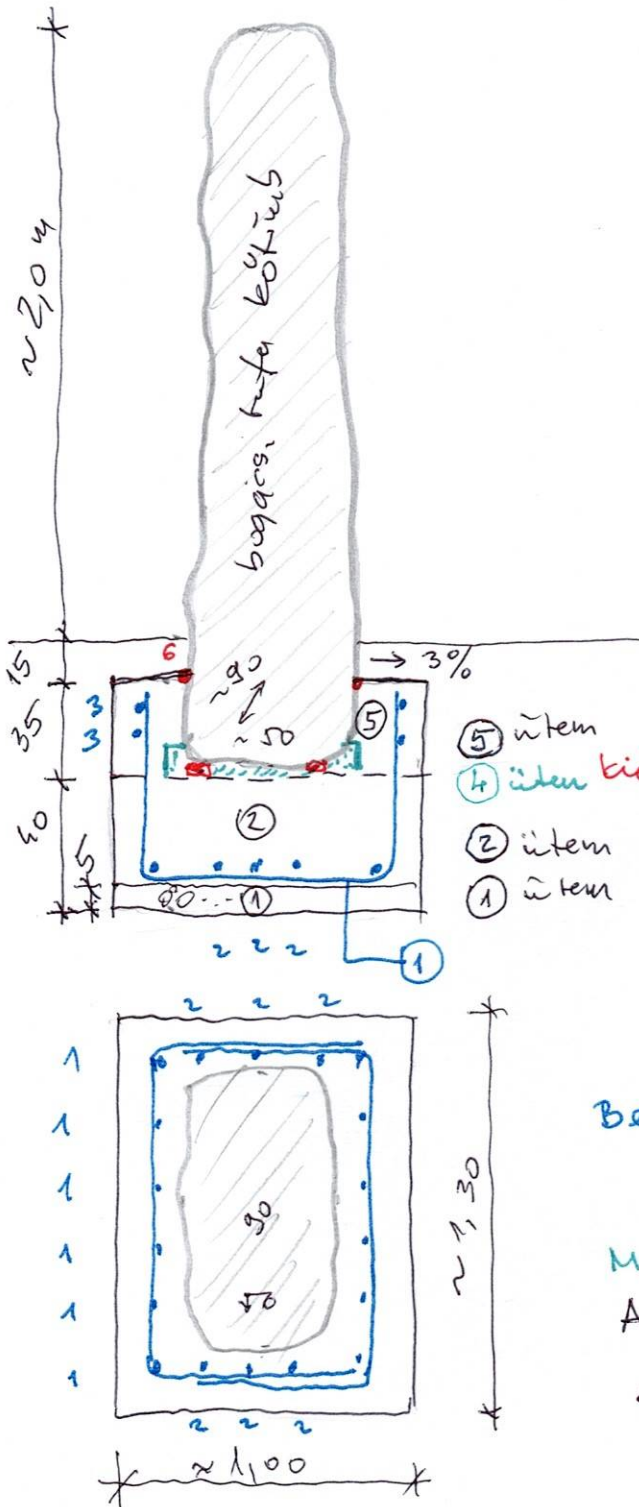 ~ 2,0 m
bogács. tufa kötömb
15
35
40
5
6
~90
~50
→ 3%
3
3
5
5 ütem
4 ütem
2
2 ütem
1
1 ütem
2 2 2
1
2 2 2
1
1
1
1
1
1
90
50
~ 1,30
2 2 2
~ 1,00
Be
M
A